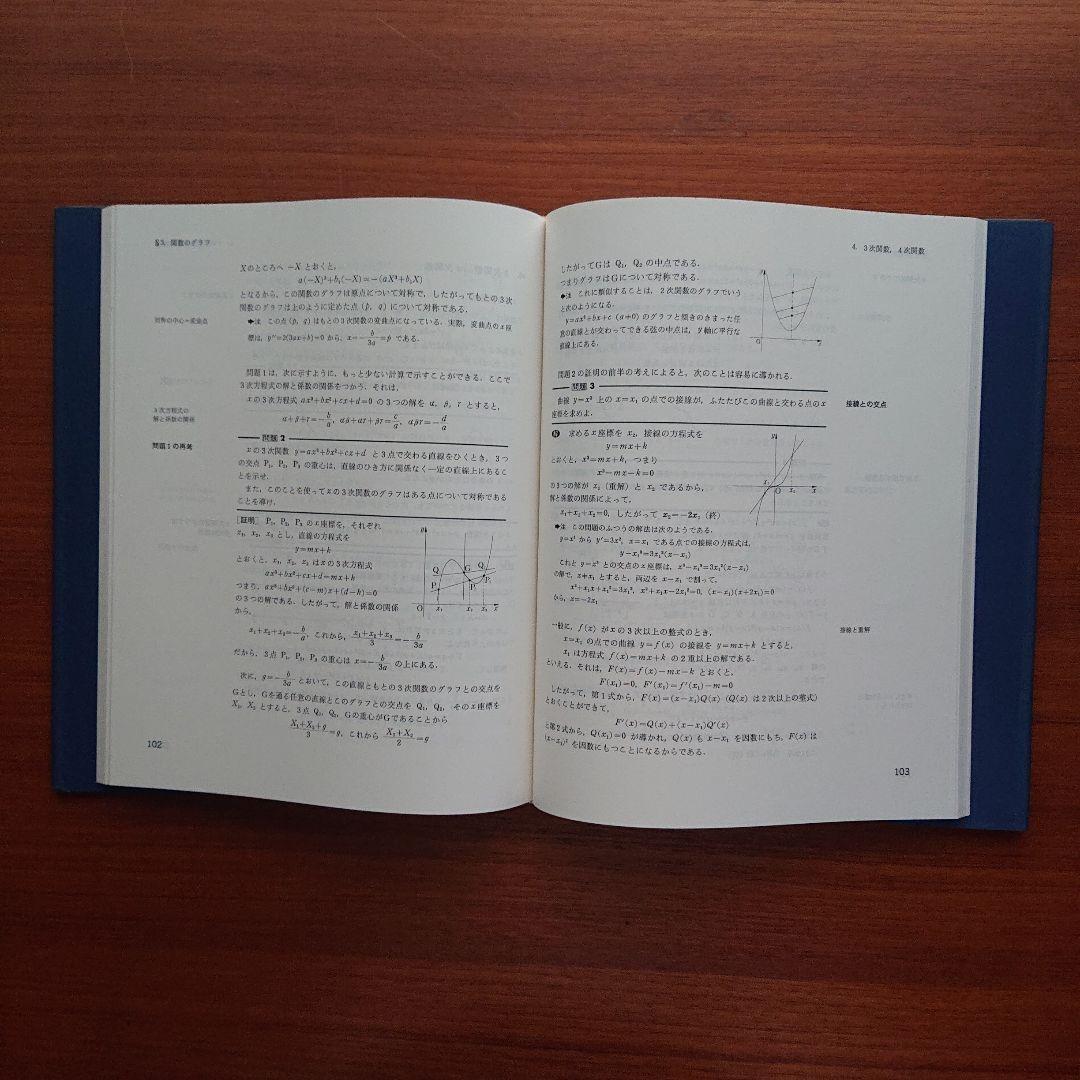 §3. 関数のグラフ
Xのところへ −X とおくと,
a(−X)³+b₁(−X)=−(aX³+b₁X)
となるから, この関数のグラフは原点について対称で, したがってもとの3次
関数のグラフは上のように定めた点 (p, q) について対称である.
対称の中心=変曲点
◆注 この点 (p, q) はもとの3次関数の変曲点になっている. 実際, 変曲点の x 座
標は, y''=2(3ax+b)=0 から, x=−b/3a=p である.
問題1は, 次に示すように, もっと少ない計算で示すことができる. ここで
3次方程式の解と係数の関係をつかう. それは,
x の3次方程式 ax³+bx²+cx+d=0 の3つの解を α, β, γ とすると,
3次方程式の
解と係数の関係
α+β+γ=−b/a, αβ+αγ+βγ=c/a, αβγ=−d/a
問題1の再考
問題2
x の3次関数 y=ax³+bx²+cx+d と3点で交わる直線をひくとき, 3つ
の交点 P₁, P₂, P₃ の重心は, 直線のひき方に関係なく一定の直線上にあるこ
とを示せ.
また, このことを使って x の3次関数のグラフはある点について対称である
ことを導け.
[証明] P₁, P₂, P₃ の x 座標を, それぞれ
x₁, x₂, x₃ とし, 直線の方程式を
y=mx+k
とおくと, x₁, x₂, x₃ は x の3次方程式
ax³+bx²+cx+d=mx+k
つまり, ax³+bx²+(c−m)x+(d−k)=0
の3つの解である. したがって, 解と係数の関係
から,
x₁+x₂+x₃=−b/a, これから, (x₁+x₂+x₃)/3=−b/3a
だから, 3点 P₁, P₂, P₃ の重心は x=−b/3a の上にある.
次に, g=−b/3a とおいて, この直線ともとの3次関数のグラフとの交点を
Gとし, Gを通る任意の直線とこのグラフとの交点を Q₁, Q₂, その x 座標を
X₁, X₂ とすると, 3点 Q₁, Q₂, Gの重心がGであることから
(X₁+X₂+g)/3=g, これから (X₁+X₂)/2=g
102
4. 3次関数, 4次関数
したがってGは Q₁, Q₂ の中点である.
つまりグラフはGについて対称である.
◆注 これに類似することは, 2次関数のグラフでいう
と次のようになる.
y=ax²+bx+c (a≠0) のグラフと傾きのきまった任
意の直線とが交わってできる弦の中点は, y 軸に平行な
直線上にある.
問題2の証明の前半の考えによると, 次のことは容易に導かれる.
問題3
曲線 y=x³ 上の x=x₁ の点での接線が, ふたたびこの曲線と交わる点の x
座標を求めよ.
接線との交点
解 求める x 座標を x₂, 接線の方程式を
y=mx+k
とおくと, x³=mx+k, つまり
x³−mx−k=0
の3つの解が x₁ (重解) と x₂ であるから,
解と係数の関係によって,
x₁+x₁+x₂=0, したがって x₂=−2x₁ (終)
◆注 この問題のふつうの解法は次のようである.
y=x³ から y'=3x², x=x₁ である点での接線の方程式は,
y−x₁³=3x₁²(x−x₁)
これと y=x³ との交点の x 座標は, x³−x₁³=3x₁²(x−x₁)
の解で, x≠x₁ とすると, 両辺を x−x₁ で割って,
x²+x₁x+x₁²=3x₁², x²+x₁x−2x₁²=0, (x−x₁)(x+2x₁)=0
から, x=−2x₁
一般に, f(x) が x の3次以上の整式のとき,
接線と重解
x=x₁ の点での曲線 y=f(x) の接線を y=mx+k とすると,
x₁ は方程式 f(x)=mx+k の2重以上の解である.
といえる. それは, F(x)=f(x)−mx−k とおくと,
F(x₁)=0, F'(x₁)=f'(x₁)−m=0
したがって, 第1式から, F(x)=(x−x₁)Q(x) (Q(x) は2次以上の整式)
とおくことができて,
F'(x)=Q(x)+(x−x₁)Q'(x)
と第2式から, Q(x₁)=0 が導かれ, Q(x) も x−x₁ を因数にもち, F(x) は
(x−x₁)² を因数にもつことになるからである.
103